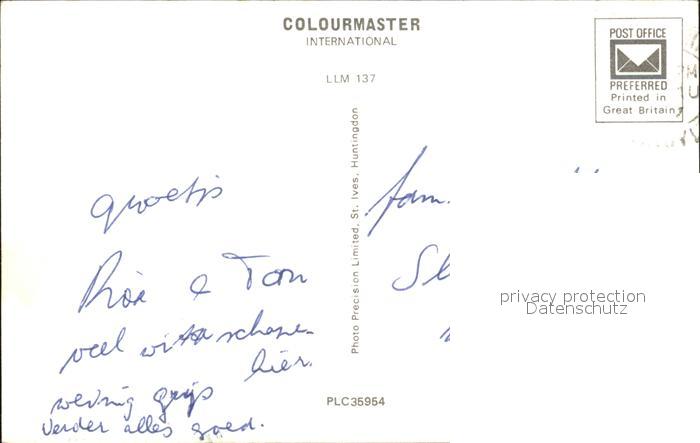 COLOURMASTER
INTERNATIONAL
LLM 137
POST OFFICE
PREFERRED
Printed in
Great Britain
Photo Precision Limited, St. Ives, Huntingdon
groetjs
Ria & Ton
veel witte schapen
hier.
weinig grijs
Verder alles goed.
fam.
privacy protection
Datenschutz
PLC35954